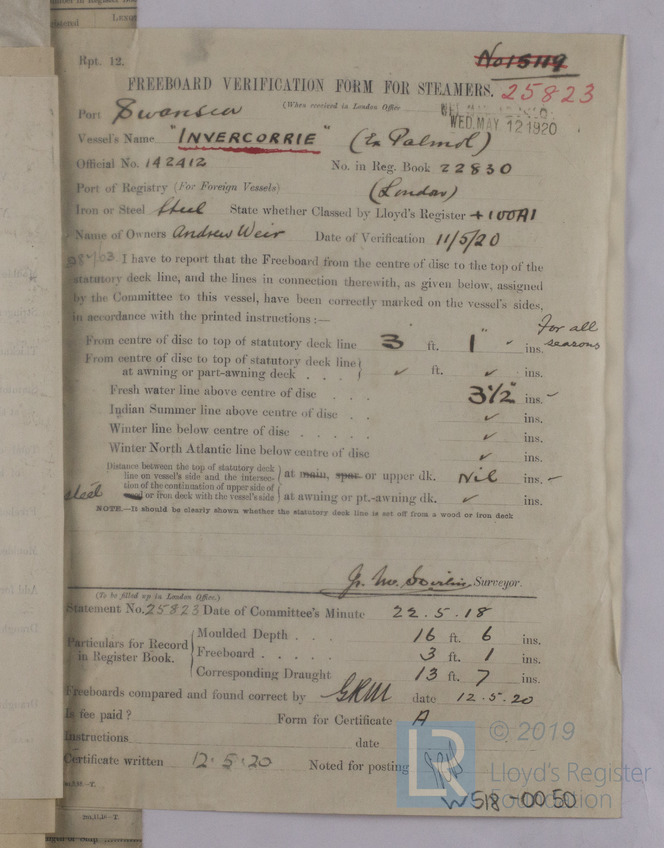 Rpt. 12.
No 15119
FREEBOARD VERIFICATION FORM FOR STEAMERS. 25823
Port Swansea (When received in London Office
WED. MAY. 12 1920
Vessel's Name "INVERCORRIE" (Ex Palmol)
Official No. 142412 No. in Reg. Book 22830
Port of Registry (For Foreign Vessels) (London)
Iron or Steel Steel State whether Classed by Lloyd's Register +100A1
Name of Owners Andrew Weir Date of Verification 11/5/20
I have to report that the Freeboard from the centre of disc to the top of the
statutory deck line, and the lines in connection therewith, as given below, assigned
by the Committee to this vessel, have been correctly marked on the vessel's sides,
in accordance with the printed instructions :—
From centre of disc to top of statutory deck line 3 ft. 1" ins. For all seasons
From centre of disc to top of statutory deck line
at awning or part-awning deck . . . ✓ ft. ✓ ins.
Fresh water line above centre of disc . . . 3½" ins.
Indian Summer line above centre of disc . . ✓ ins.
Winter line below centre of disc . . . . . ✓ ins.
Winter North Atlantic line below centre of disc ✓ ins.
Distance between the top of statutory deck
line on vessel's side and the intersec-
tion of the continuation of upper side of
steel or iron deck with the vessel's side
at main, spar or upper dk. Nil ins.
at awning or pt.-awning dk. ✓ ins.
NOTE.—It should be clearly shown whether the statutory deck line is set off from a wood or iron deck
Surveyor.
(To be filled up in London Office.)
Statement No. 25823 Date of Committee's Minute 22.5.18
Particulars for Record
in Register Book.
Moulded Depth . . . 16 ft. 6 ins.
Freeboard . . . . . 3 ft. 1 ins.
Corresponding Draught 13 ft. 7 ins.
Freeboards compared and found correct by GRM date 12.5.20
Is fee paid ? Form for Certificate A
Instructions date
Certificate written 12.5.20 Noted for posting
© 2019
LR
Lloyd's Register
Foundation
W518-0050